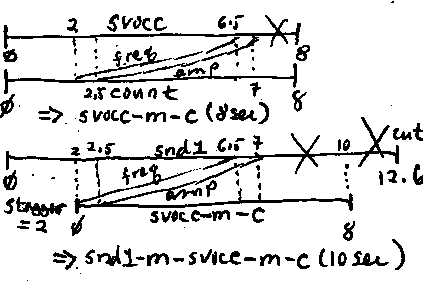 2 svocc 6.5
ø 8
freq amp
2.5 count 7
ø 8
=> svocc-m-c (8sec)
2 2.5 snd1 6.5 7 10 cut
ø 12.6
freq amp
stagger = 2 ø svocc-m-c 8
=> snd1-m-svocc-m-c (10 sec)